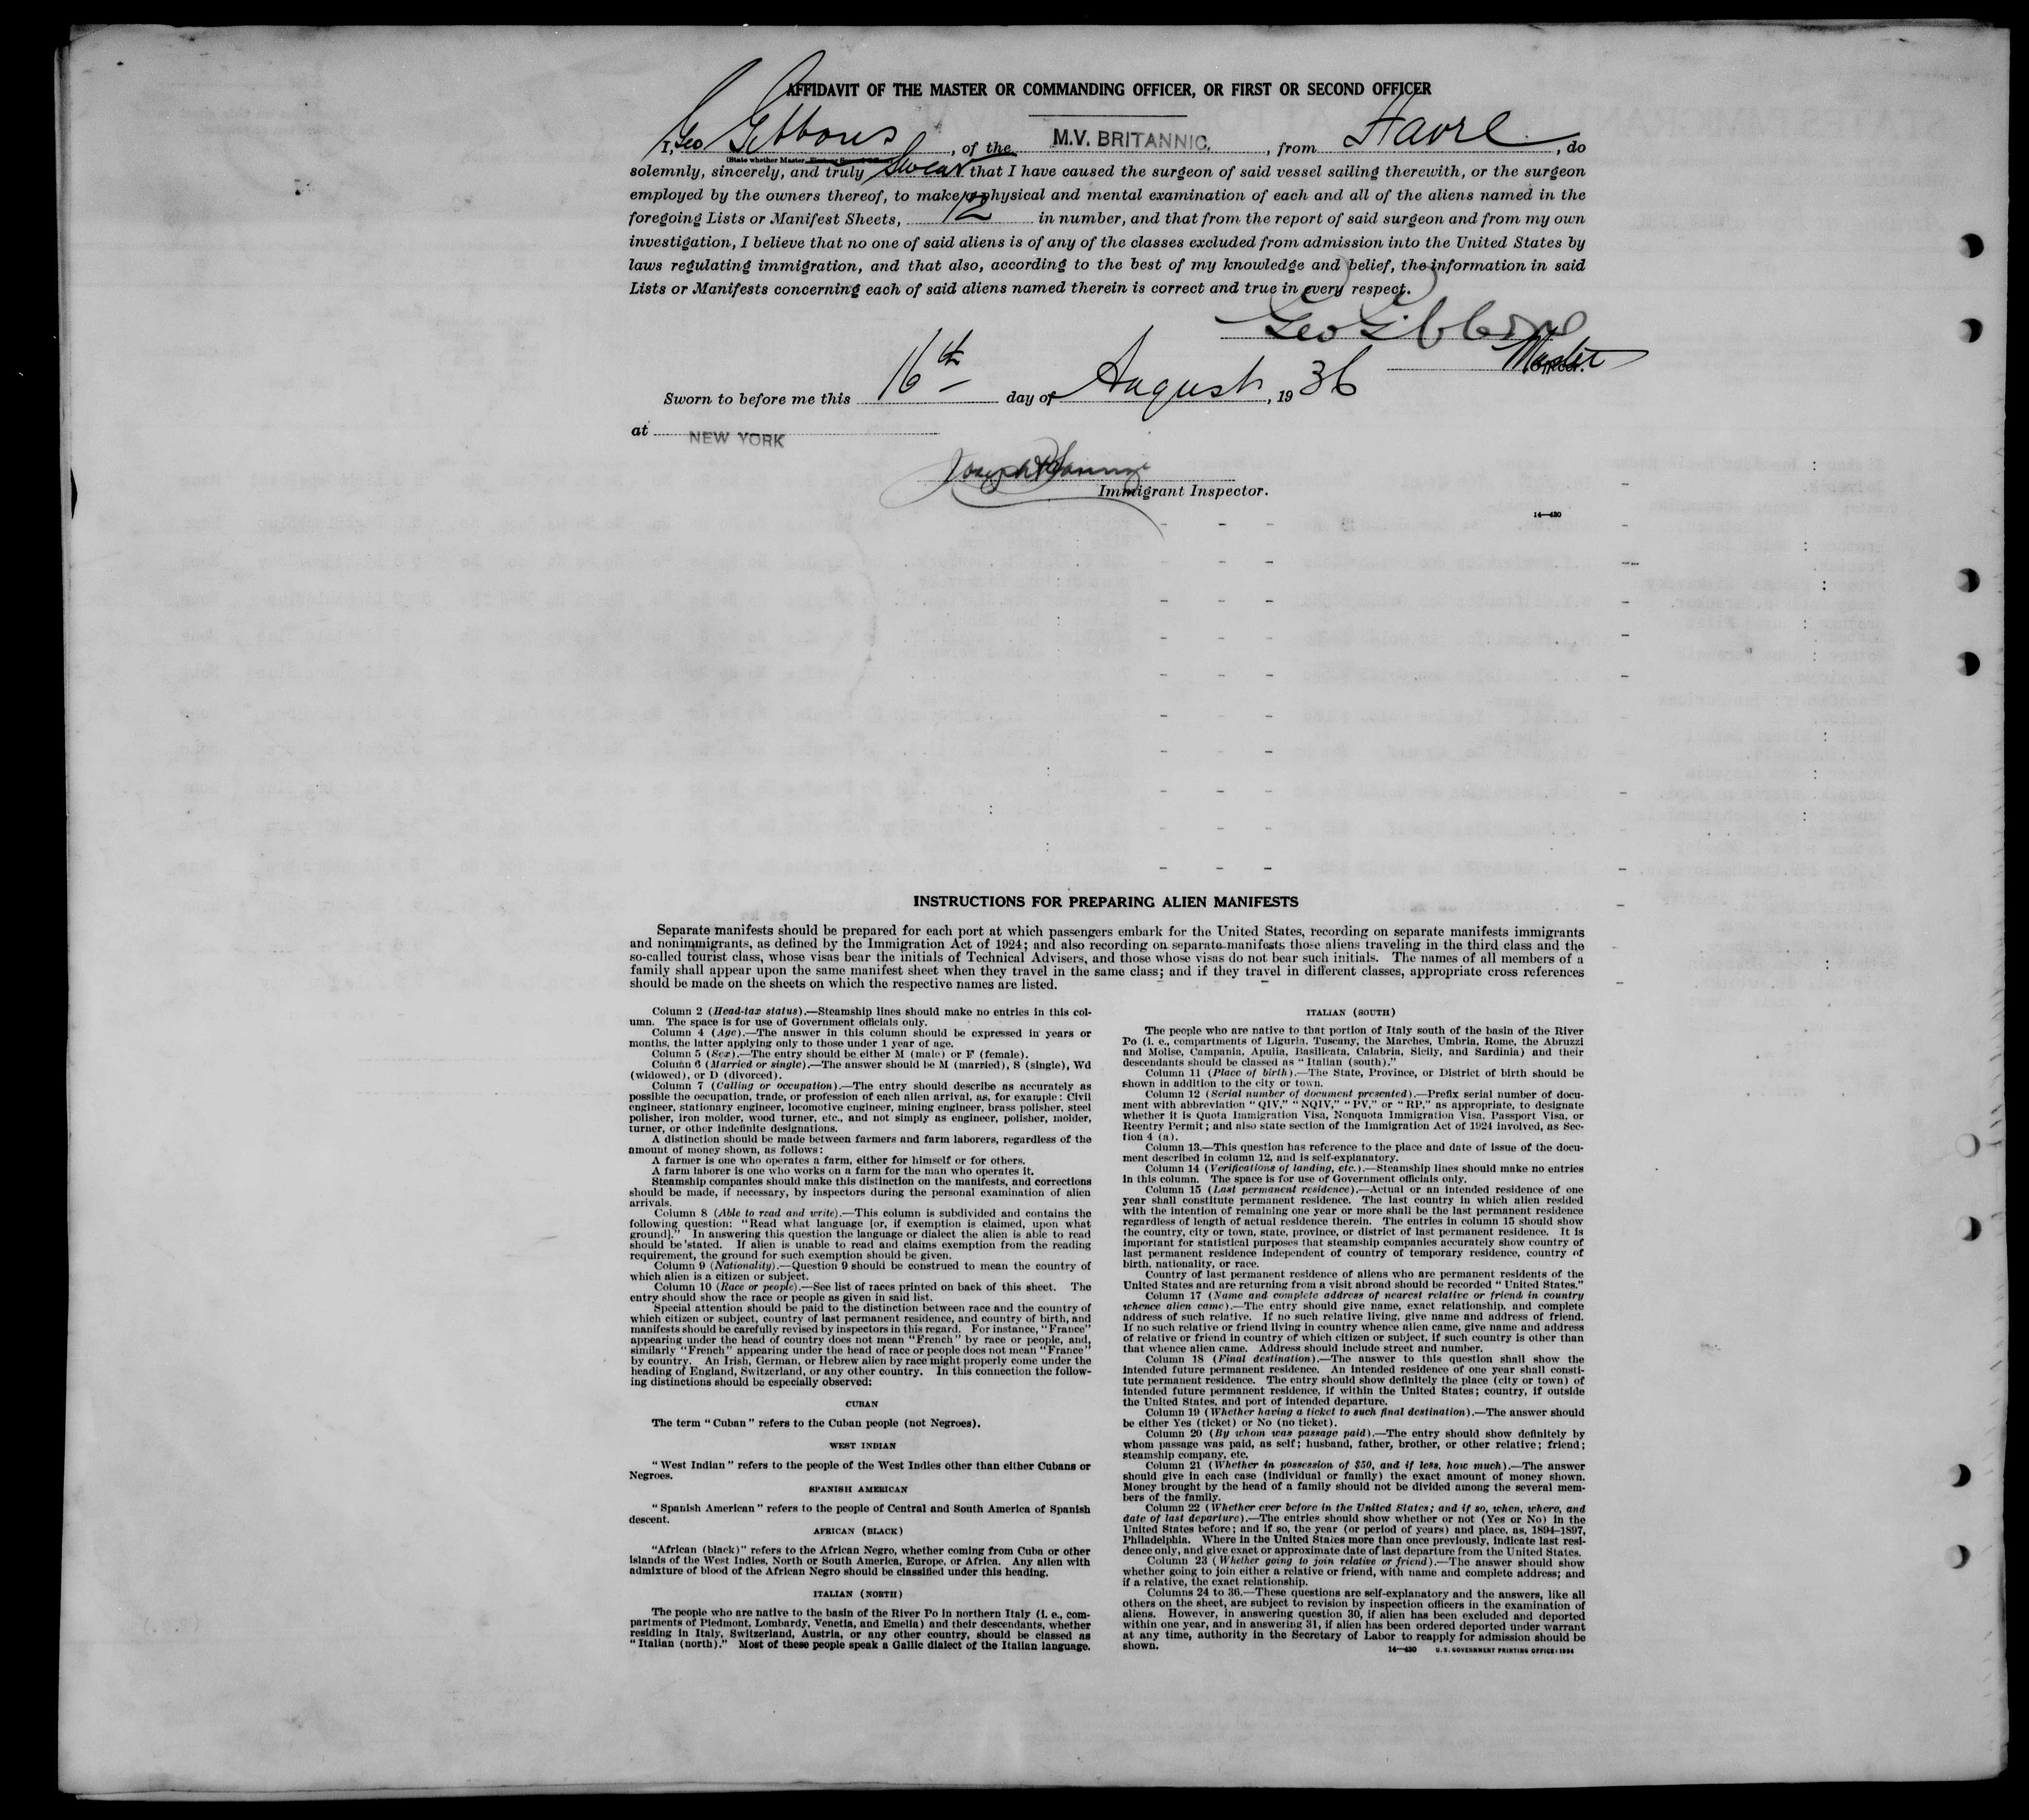 AFFIDAVIT OF THE MASTER OR COMMANDING OFFICER, OR FIRST OR SECOND OFFICER
I, Geo Gibbons, of the M.V. BRITANNIC, from Havre, do
(State whether Master, First or Second Officer)
solemnly, sincerely, and truly Swear that I have caused the surgeon of said vessel sailing therewith, or the surgeon
employed by the owners thereof, to make a physical and mental examination of each and all of the aliens named in the
foregoing Lists or Manifest Sheets, 12 in number, and that from the report of said surgeon and from my own
investigation, I believe that no one of said aliens is of any of the classes excluded from admission into the United States by
laws regulating immigration, and that also, according to the best of my knowledge and belief, the information in said
Lists or Manifests concerning each of said aliens named therein is correct and true in every respect.
Geo Gibbons
Master
Officer.
Sworn to before me this 16th day of August, 1936
at NEW YORK
Immigrant Inspector.
14—430
INSTRUCTIONS FOR PREPARING ALIEN MANIFESTS
Separate manifests should be prepared for each port at which passengers embark for the United States, recording on separate manifests immigrants
and nonimmigrants, as defined by the Immigration Act of 1924; and also recording on separate manifests those aliens traveling in the third class and the
so-called tourist class, whose visas bear the initials of Technical Advisers, and those whose visas do not bear such initials. The names of all members of a
family shall appear upon the same manifest sheet when they travel in the same class; and if they travel in different classes, appropriate cross references
should be made on the sheets on which the respective names are listed.
Column 2 (Head-tax status).—Steamship lines should make no entries in this col-
umn. The space is for use of Government officials only.
Column 4 (Age).—The answer in this column should be expressed in years or
months, the latter applying only to those under 1 year of age.
Column 5 (Sex).—The entry should be either M (male) or F (female).
Column 6 (Married or single).—The answer should be M (married), S (single), Wd
(widowed), or D (divorced).
Column 7 (Calling or occupation).—The entry should describe as accurately as
possible the occupation, trade, or profession of each alien arrival, as, for example: Civil
engineer, stationary engineer, locomotive engineer, mining engineer, brass polisher, steel
polisher, iron molder, wood turner, etc., and not simply as engineer, polisher, molder,
turner, or other indefinite designations.
A distinction should be made between farmers and farm laborers, regardless of the
amount of money shown, as follows:
A farmer is one who operates a farm, either for himself or for others.
A farm laborer is one who works on a farm for the man who operates it.
Steamship companies should make this distinction on the manifests, and corrections
should be made, if necessary, by inspectors during the personal examination of alien
arrivals.
Column 8 (Able to read and write).—This column is subdivided and contains the
following question: "Read what language [or, if exemption is claimed, upon what
ground]." In answering this question the language or dialect the alien is able to read
should be stated. If alien is unable to read and claims exemption from the reading
requirement, the ground for such exemption should be given.
Column 9 (Nationality).—Question 9 should be construed to mean the country of
which alien is a citizen or subject.
Column 10 (Race or people).—See list of races printed on back of this sheet. The
entry should show the race or people as given in said list.
Special attention should be paid to the distinction between race and the country of
which citizen or subject, country of last permanent residence, and country of birth, and
manifests should be carefully revised by inspectors in this regard. For instance, "France"
appearing under the head of country does not mean "French" by race or people, and,
similarly "French" appearing under the head of race or people does not mean "France"
by country. An Irish, German, or Hebrew alien by race might properly come under the
heading of England, Switzerland, or any other country. In this connection the follow-
ing distinctions should be especially observed:
CUBAN
The term "Cuban" refers to the Cuban people (not Negroes).
WEST INDIAN
"West Indian" refers to the people of the West Indies other than either Cubans or
Negroes.
SPANISH AMERICAN
"Spanish American" refers to the people of Central and South America of Spanish
descent.
AFRICAN (BLACK)
"African (black)" refers to the African Negro, whether coming from Cuba or other
islands of the West Indies, North or South America, Europe, or Africa. Any alien with
admixture of blood of the African Negro should be classified under this heading.
ITALIAN (NORTH)
The people who are native to the basin of the River Po in northern Italy (i. e., com-
partments of Piedmont, Lombardy, Venetia, and Emelia) and their descendants, whether
residing in Italy, Switzerland, Austria, or any other country, should be classed as
"Italian (north)." Most of these people speak a Gallic dialect of the Italian language.
ITALIAN (SOUTH)
The people who are native to that portion of Italy south of the basin of the River
Po (i. e., compartments of Liguria, Tuscany, the Marches, Umbria, Rome, the Abruzzi
and Molise, Campania, Apulia, Basilicata, Calabria, Sicily, and Sardinia) and their
descendants should be classed as "Italian (south)."
Column 11 (Place of birth).—The State, Province, or District of birth should be
shown in addition to the city or town.
Column 12 (Serial number of document presented).—Prefix serial number of docu-
ment with abbreviation "QIV," "NQIV," "PV," or "RP," as appropriate, to designate
whether it is Quota Immigration Visa, Nonquota Immigration Visa, Passport Visa, or
Reentry Permit; and also state section of the Immigration Act of 1924 involved, as Sec-
tion 4 (a).
Column 13.—This question has reference to the place and date of issue of the docu-
ment described in column 12, and is self-explanatory.
Column 14 (Verifications of landing, etc.).—Steamship lines should make no entries
in this column. The space is for use of Government officials only.
Column 15 (Last permanent residence).—Actual or an intended residence of one
year shall constitute permanent residence. The last country in which alien resided
with the intention of remaining one year or more shall be the last permanent residence
regardless of length of actual residence therein. The entries in column 15 should show
the country, city or town, state, province, or district of last permanent residence. It is
important for statistical purposes that steamship companies accurately show country of
last permanent residence independent of country of temporary residence, country of
birth, nationality, or race.
Country of last permanent residence of aliens who are permanent residents of the
United States and are returning from a visit abroad should be recorded "United States."
Column 17 (Name and complete address of nearest relative or friend in country
whence alien came).—The entry should give name, exact relationship, and complete
address of such relative. If no such relative living, give name and address of friend.
If no such relative or friend living in country whence alien came, give name and address
of relative or friend in country of which citizen or subject, if such country is other than
that whence alien came. Address should include street and number.
Column 18 (Final destination).—The answer to this question shall show the
intended future permanent residence. An intended residence of one year shall consti-
tute permanent residence. The entry should show definitely the place (city or town) of
intended future permanent residence, if within the United States; country, if outside
the United States, and port of intended departure.
Column 19 (Whether having a ticket to such final destination).—The answer should
be either Yes (ticket) or No (no ticket).
Column 20 (By whom was passage paid).—The entry should show definitely by
whom passage was paid, as self; husband, father, brother, or other relative; friend;
steamship company, etc.
Column 21 (Whether in possession of $50, and if less, how much).—The answer
should give in each case (individual or family) the exact amount of money shown.
Money brought by the head of a family should not be divided among the several mem-
bers of the family.
Column 22 (Whether ever before in the United States; and if so, when, where, and
date of last departure).—The entries should show whether or not (Yes or No) in the
United States before; and if so, the year (or period of years) and place, as, 1894–1897,
Philadelphia. Where in the United States more than once previously, indicate last resi-
dence only, and give exact or approximate date of last departure from the United States.
Column 23 (Whether going to join relative or friend).—The answer should show
whether going to join either a relative or friend, with name and complete address; and
if a relative, the exact relationship.
Columns 24 to 36.—These questions are self-explanatory and the answers, like all
others on the sheet, are subject to revision by inspection officers in the examination of
aliens. However, in answering question 30, if alien has been excluded and deported
within one year, and in answering 31, if alien has been ordered deported under warrant
at any time, authority in the Secretary of Labor to reapply for admission should be
shown.
14—430 U. S. GOVERNMENT PRINTING OFFICE: 1934